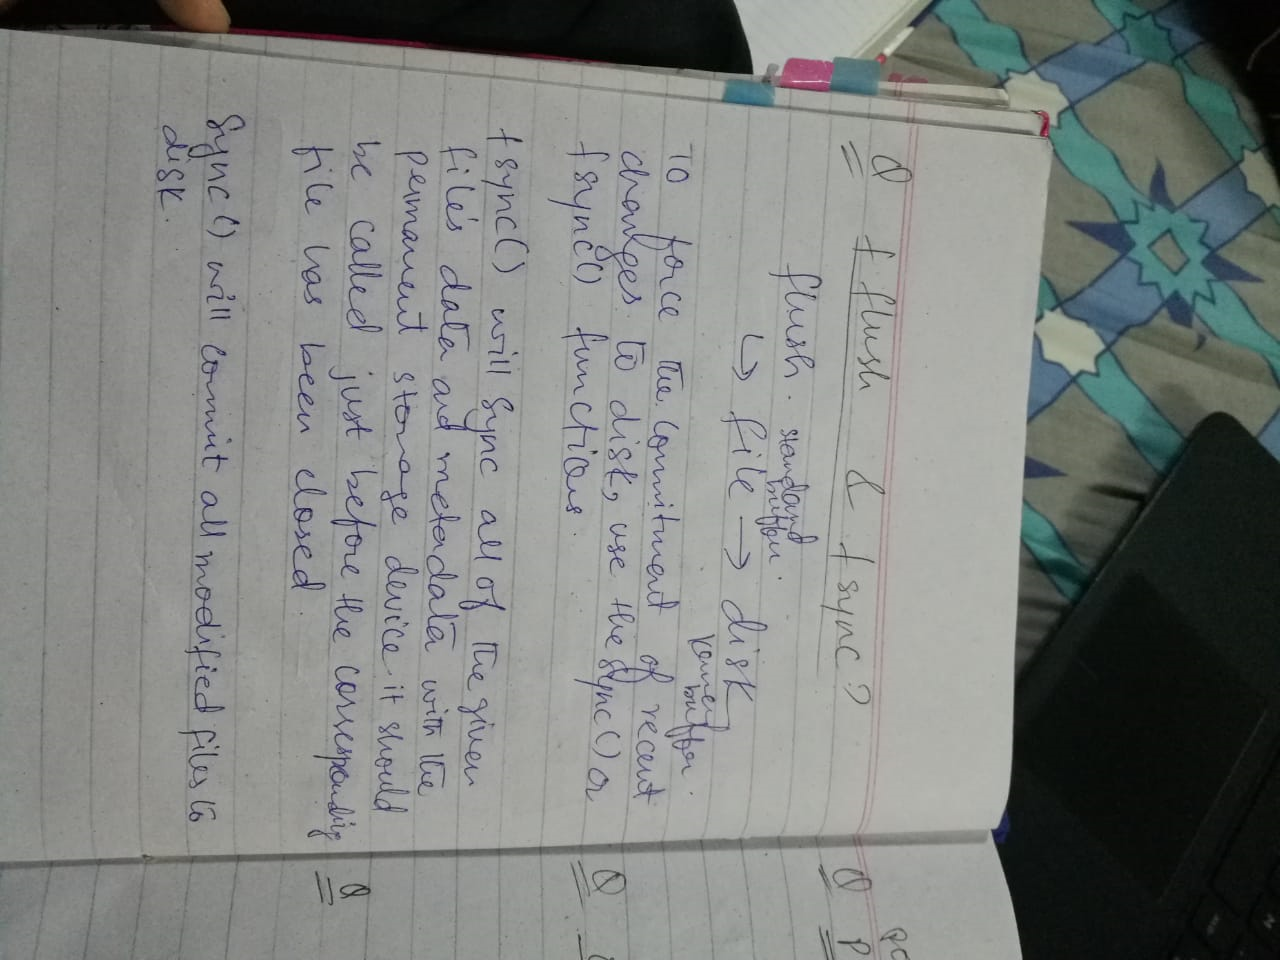 Q fflush & fsync?
flush. standard buffer.
↳ file → disk
kernel buffer.
To force the commitment of recent
changes to disk, use the sync() or
fsync() functions.
fsync() will sync all of the given
file's data and metadata with the
permanent storage device. it should
be called just before the corresponding
file has been closed.
Sync() will commit all modified files to
disk.
Q P
Q
Q